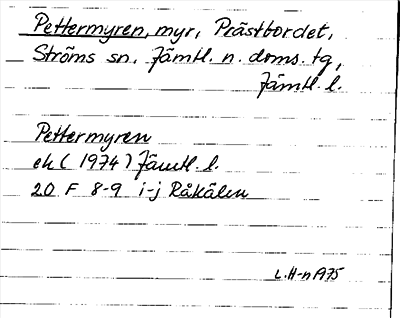 Pettermyren, myr, Prästbordet,
Ströms sn. Jämtl. n. doms. tg,
Jämtl. l.
Pettermyren
ek (1974) Jämtl. l.
20 F 8-9 i-j Råkälen
L.H-n 1975